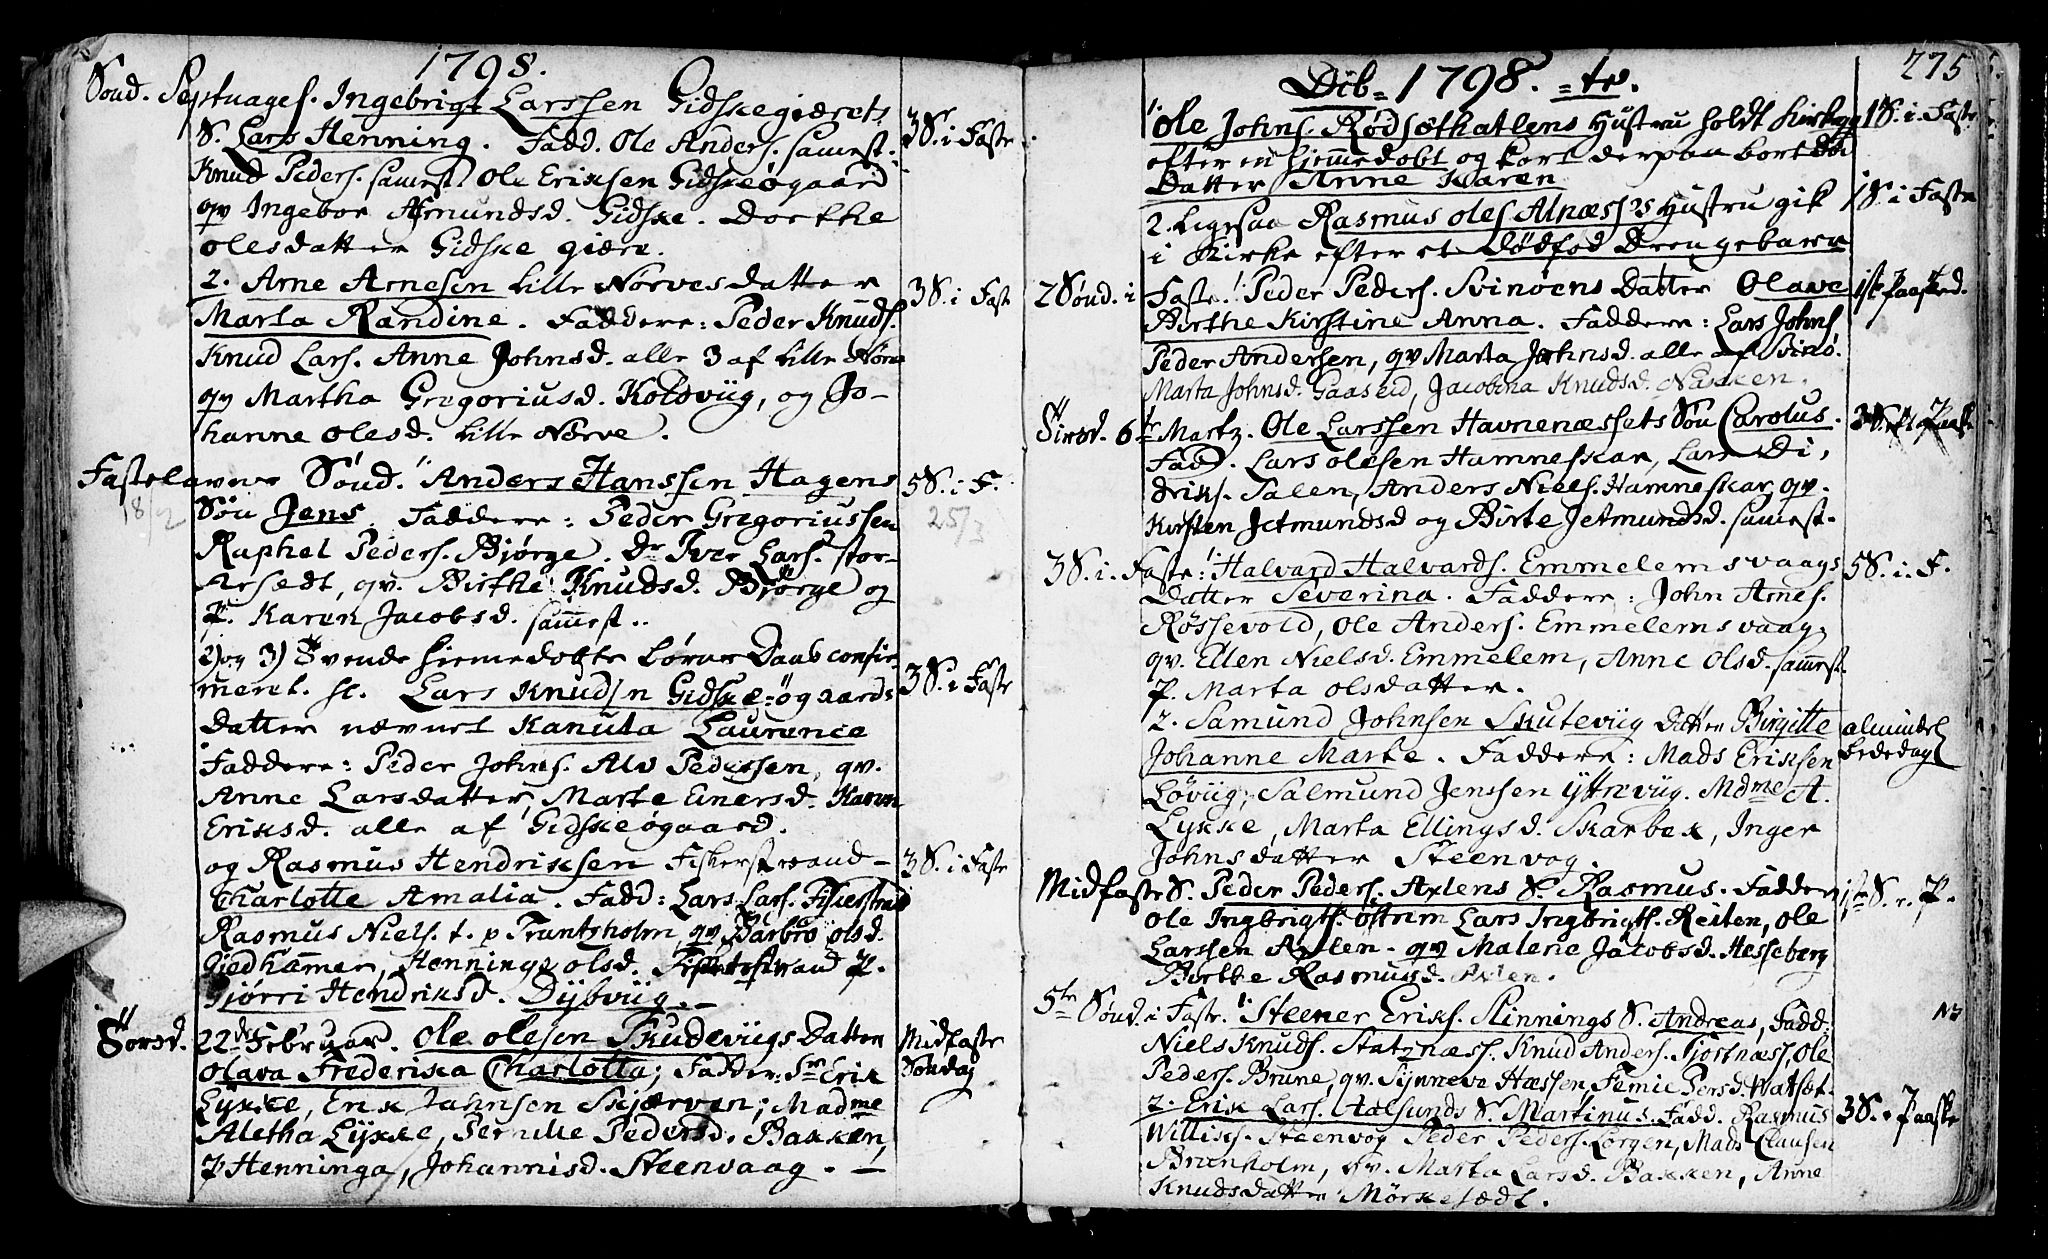 1798.
Sønd. Septuages. Ingebrigt Larssen Gidskegiærets
S. Lars Henning. Fadd. Ole Anders. samest. 3 S. i Faste
Knud Peders. samest Ole Eriksen Gidskeøgaard
qv Ingebor Asmundsd. Gidske. Dorthe
olesdatter Gidske giære.
2. Arne Arnesen Lille Nørves datter 3 S. i Faste
Marta Randine. Faddere: Peder Knuds.
Knud Lars. Anne Johnsd. alle 3 af Lille Nørve
qv Martha Gregoriusd. Kolsviig, og Jo-
hanne olesd. Lille Nørve.
Fastelavns Sønd. 1. Anders Hanssen Hagens 5 S. i F.
18/2 Søn Jens. Faddere: Peder Gregoriussen 25/3
Raphel Peders. Bjørge. Dr Iver Lars. stor-
sædt, qv. Birthe Knudsd. Bjørge og
P. Karen Jacobsd. sammest..
2) og 3) Tvende hiemedøbte børns Daab confir
meret. sc. Lars Knudsn Gidske-øgaards 3 S. i Faste
datter nævnet Kanuta Laurence
Faddere: Peder Johns. Alv Pedersen, qv.
Anne Larsdatter, Marte Einersd. Karen
Eriksd. alle af Gidskeøgaard.
og Rasmus Hendriksen Fiskerstrand- 3 S. i Faste
Charlotte Amalia. Fadd: Lars Lars. Fiskerstrand
Rasmus Niels. t. p Trantsholm, qv Barbro olsd.
Giedhamer, Henningo olsd. Fiskerstrand P.
Gjørri Hendriksd. Dybviig.-
Tirsd. 22de Februar. Ole olesen Skudeviigs Datter Midfaste
Olava Frederica Charlotta; Fadder: Sr Erik Søndag
Lykke, Erik Johnsen Skjærven; Madme
Aletha Lykke, Pedersd. Bakken,
P Henninga, Johannisd. Steenvaag. -
Døb= 1798. =te. 275
1. Ole Johns. Rødsøthatlens Hustru holdt Kirkgg 1 S. i Faste
efter en hjemmedøbt og kort derpaa bort død
Datter Anne Karen
2. Ligesaa Rasmus oles Alnæss's Hustru gik 1 S. i Faste
i Kirke efter et Dødfød Drengebarn
2 Sønd. i Faste. 1. Peder Peders. Svinøens Datter Olave 1ste Paasked.
Birthe Kirstine Anna. Faddere: Lars Johns.
Peder Andersen, qv Marta Johnsd. alle af Svinø.
Marta Johnsd. Gaaseid, Jacobina Knudsd. Nakken.
Tirsd. 6te Martz. Ole Larssen Havnenæssets Søn Carolus. 3 S. Paaske
Fadd. Lars olesen Hamneskar, Lars Di,
driks. Salen, Anders Niels. Hamneskar, qv.
Kirsten Jetmundsd og Birte Jetmundsd. samest.
3 S. i. Faste 1. Halvard Halvards. Emmelemsvaags 5 S. i. F.
Datter Severina. Faddere: John Arnes.
Røssevold, Ole Anders. Emmelemsvaag,
qv. Ellen Nielsd. Emmelem, Anne Olsd. sammest.
P. Marta olsdatter.
2. Samund Johnsen Skuteviig Datter Birgitte almindel
Johanne Marte. Faddere: Mads Eriksen Bededag
Løviig, Salmund Jenssen Yttreviig. Madme A.
Lykke, Marta Ellingsd. Skarbek, Inger
Johnsdatter Steenvog
Midfaste S. Peder Peders. Axlens S. Rasmus. Fadder 1ste S. e. P.
Ole Ingbrigts. østrem Lars Ingbrigts. Reiten, Ole
Larssen Axlen - qv Malene Jacobsd. Hesseberg
Birthe Rasmusd. Axlen.
5te Sønd. i Faste. 1. Steener Eriks. Slinnings S. Andreas, Fadd:
Niels Knuds. Slatznæss. Knud Anders. Fjortnæss, Ole
Peders. Brune, qv. Synneve Hæssen, Femie Persd. Watset.
2. Erik Lars. Aalesunds S. Martinus. Fadd. Rasmus 3 S. e Paaske
Williks. Steenvog Peder Peders. Lorgen, Mads Clausen
Brunholm, qv. Marta Larsd. Bakken, Anne
Knudsdatter Mørkesædt.